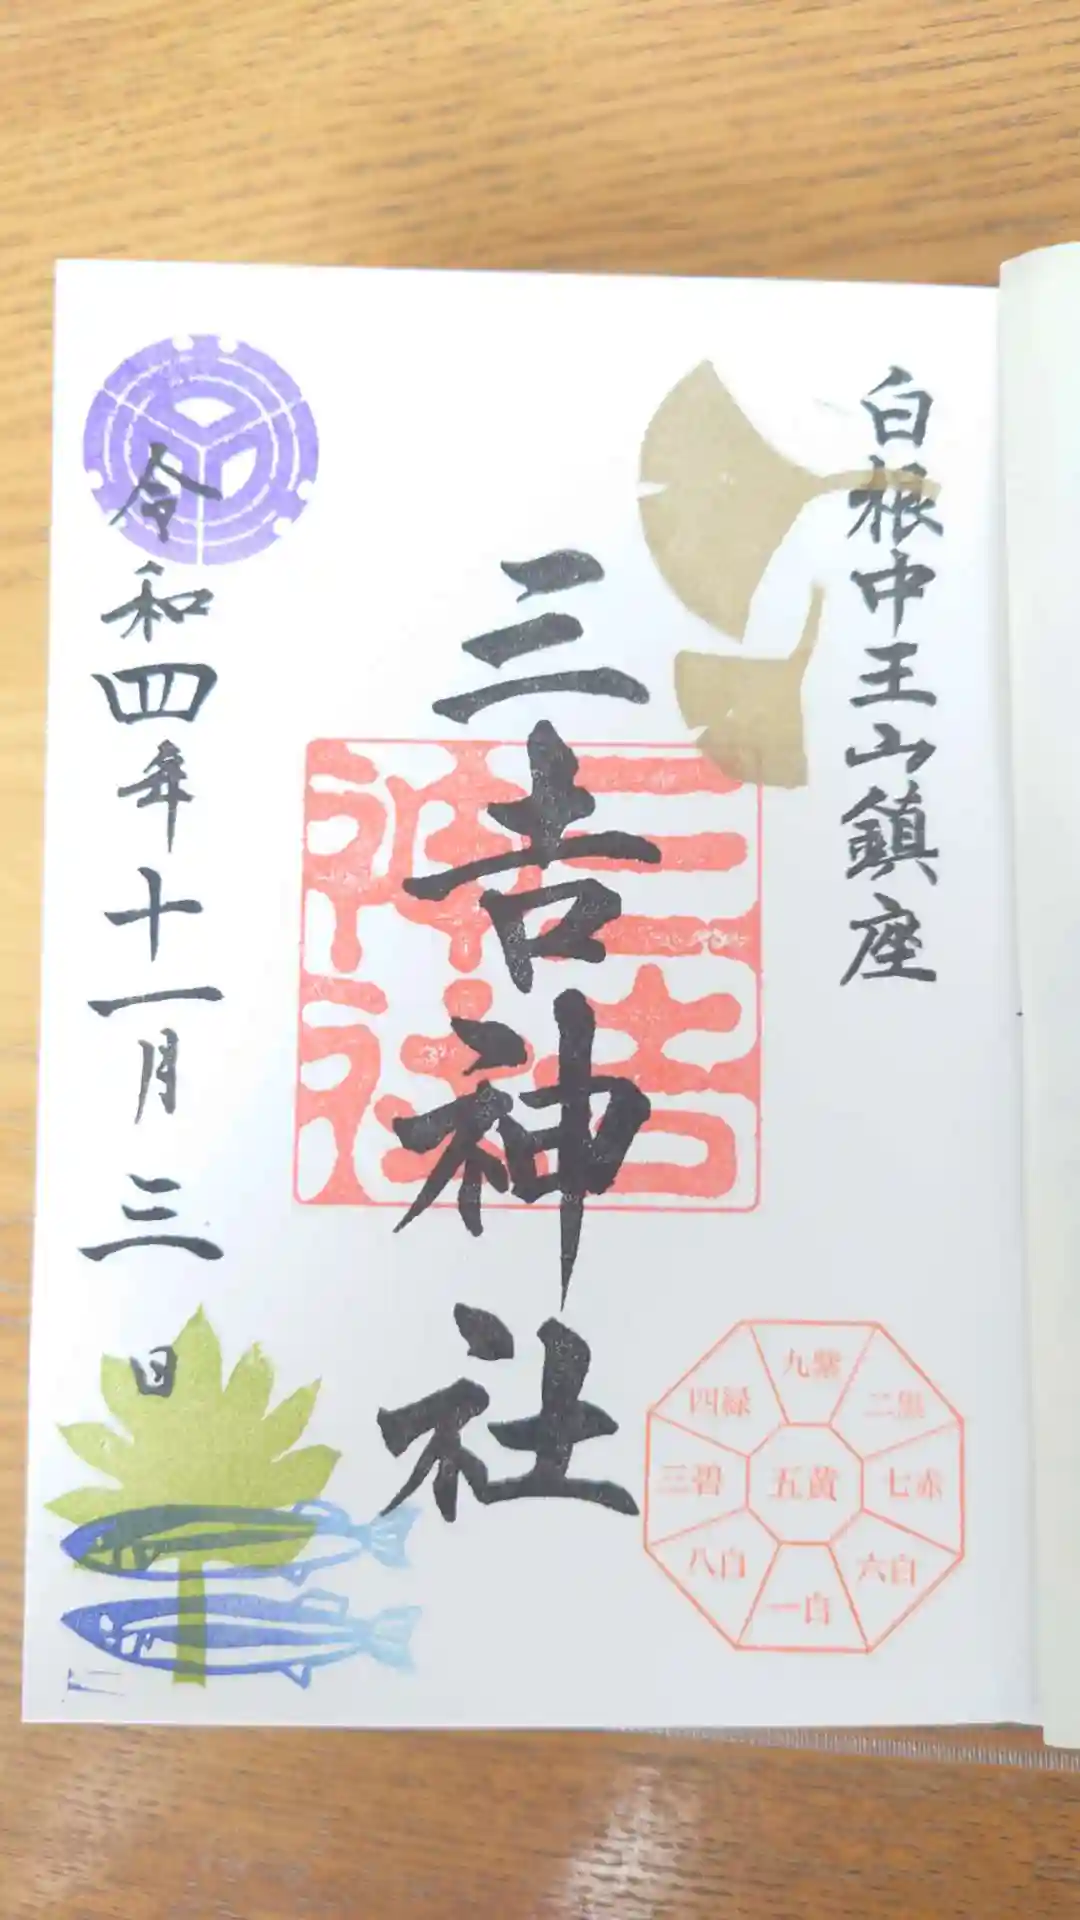 白根中王山鎮座
三吉神社
三吉神社
令和四年十一月三日
九紫
四緑
二黒
三碧
五黄
七赤
八白
六白
一白